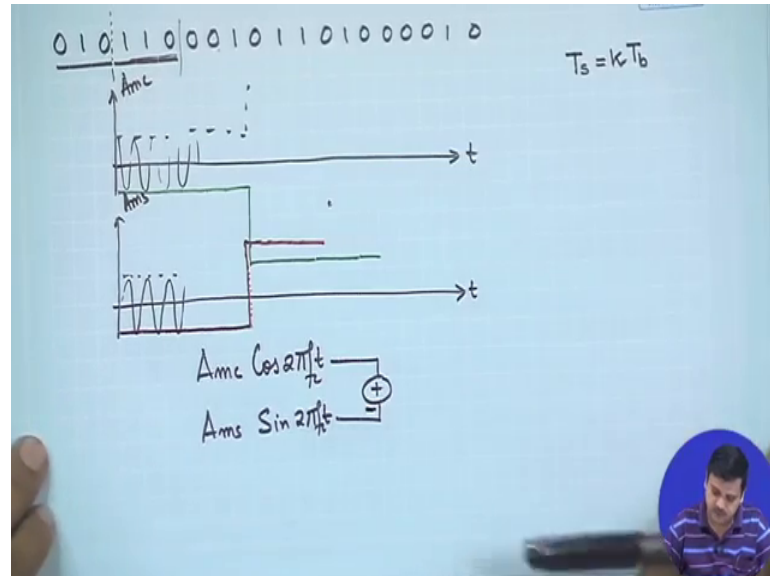 0 1 0 1 1 0 0 0 1 0 1 1 0 1 0 0 0 0 1 0
Ts = KTb
Amc
t
Ams
t
Amc Cos 2πfct
+
-
Ams Sin 2πfct